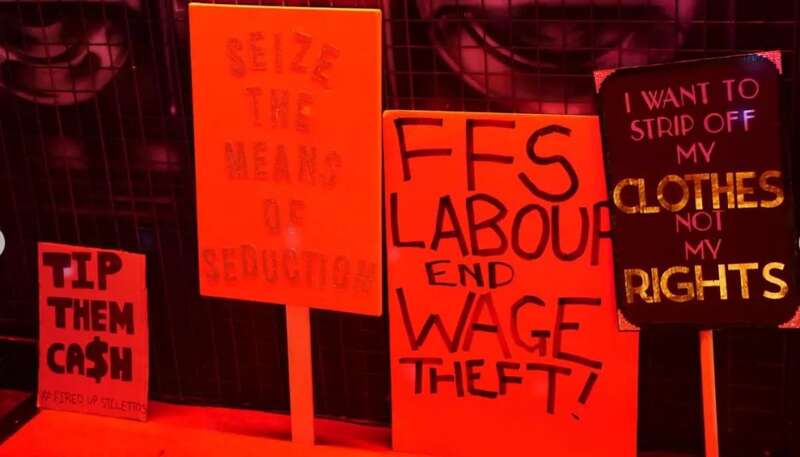 TIP
THEM
CA$H
#FIRED UP STILETTOS
SEIZE
THE
MEANS
OF
SEDUCTION
FFS
LABOUR
END
WAGE
THEFT!
I WANT TO
STRIP OFF
MY
CLOTHES
NOT
MY
RIGHTS